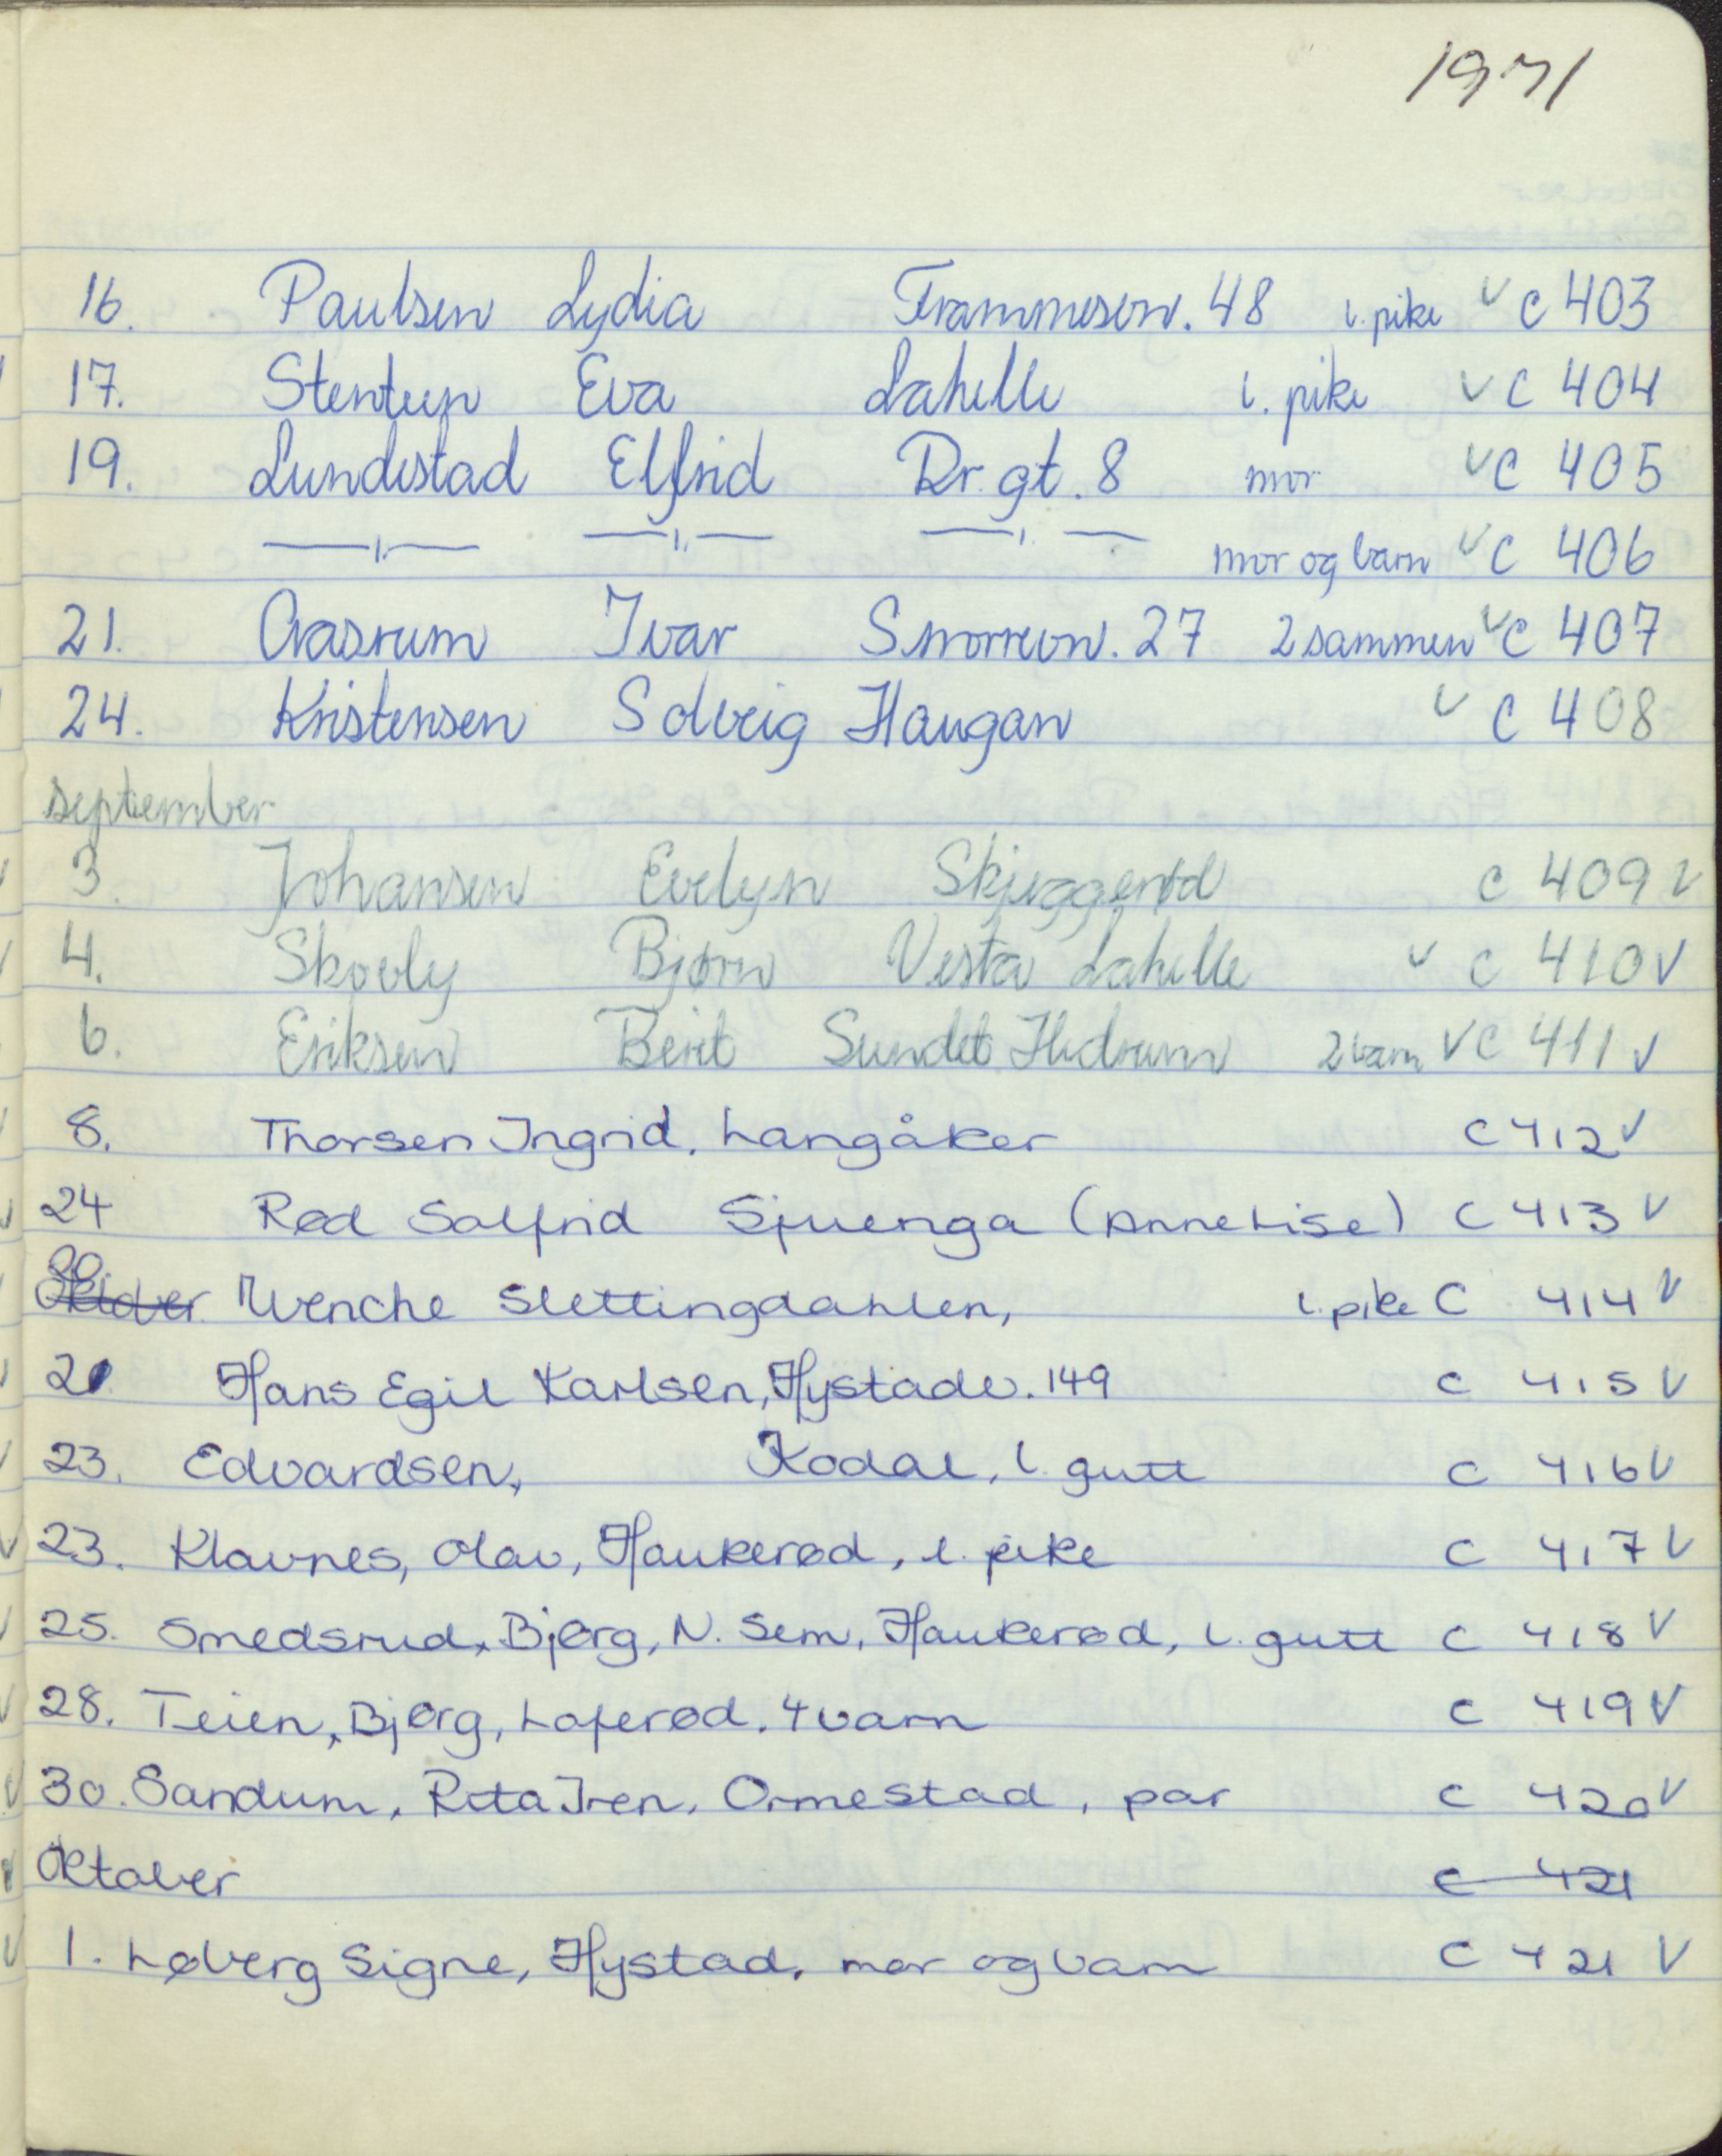 1971
16. Paulsen Lydia Frammesvn. 48 l. pike v C 403
17. Eva Lahelle l. pike v C 404
19. Lundestad Elfrid Dr. gt. 8 mor v C 405
—„— —„— —„— mor og barn v C 406
21. Aasrum Ivar Snorresvn. 27 2 sammen v C 407
24. Kristensen Solveig Haugan v C 408
september
3. Johansen Evelyn Skjeggerød C 409 v
4. Skovly Bjørn Vestre Lahelle v C 410 v
6. Eriksen Berit Sundet Hedrum 2 barn v C 411 v
8. Thorsen Ingrid, Langåker C 412 v
24 Rød Solfrid Sjuenga (Anne Lise) C 413 v
20. Oktober Wenche Slettingdahlen, l. pike C 414 v
21 Hans Egil Karlsen, Hystadv. 149 C 415 v
23. Edvardsen, Kodal, l. gutt C 416 v
23. Klavnes, Olav, Haukerød, l. pike C 417 v
25. Smedsrud, Bjørg, N. Sem, Haukerød, l. gutt C 418 v
28. Teien, Bjørg, Loferød. 4 barn C 419 v
30. Sandum, Rita Iren, Ormestad, par C 420 v
Oktober C 421
1. Løberg Signe, Hystad, mor og barn C 421 v